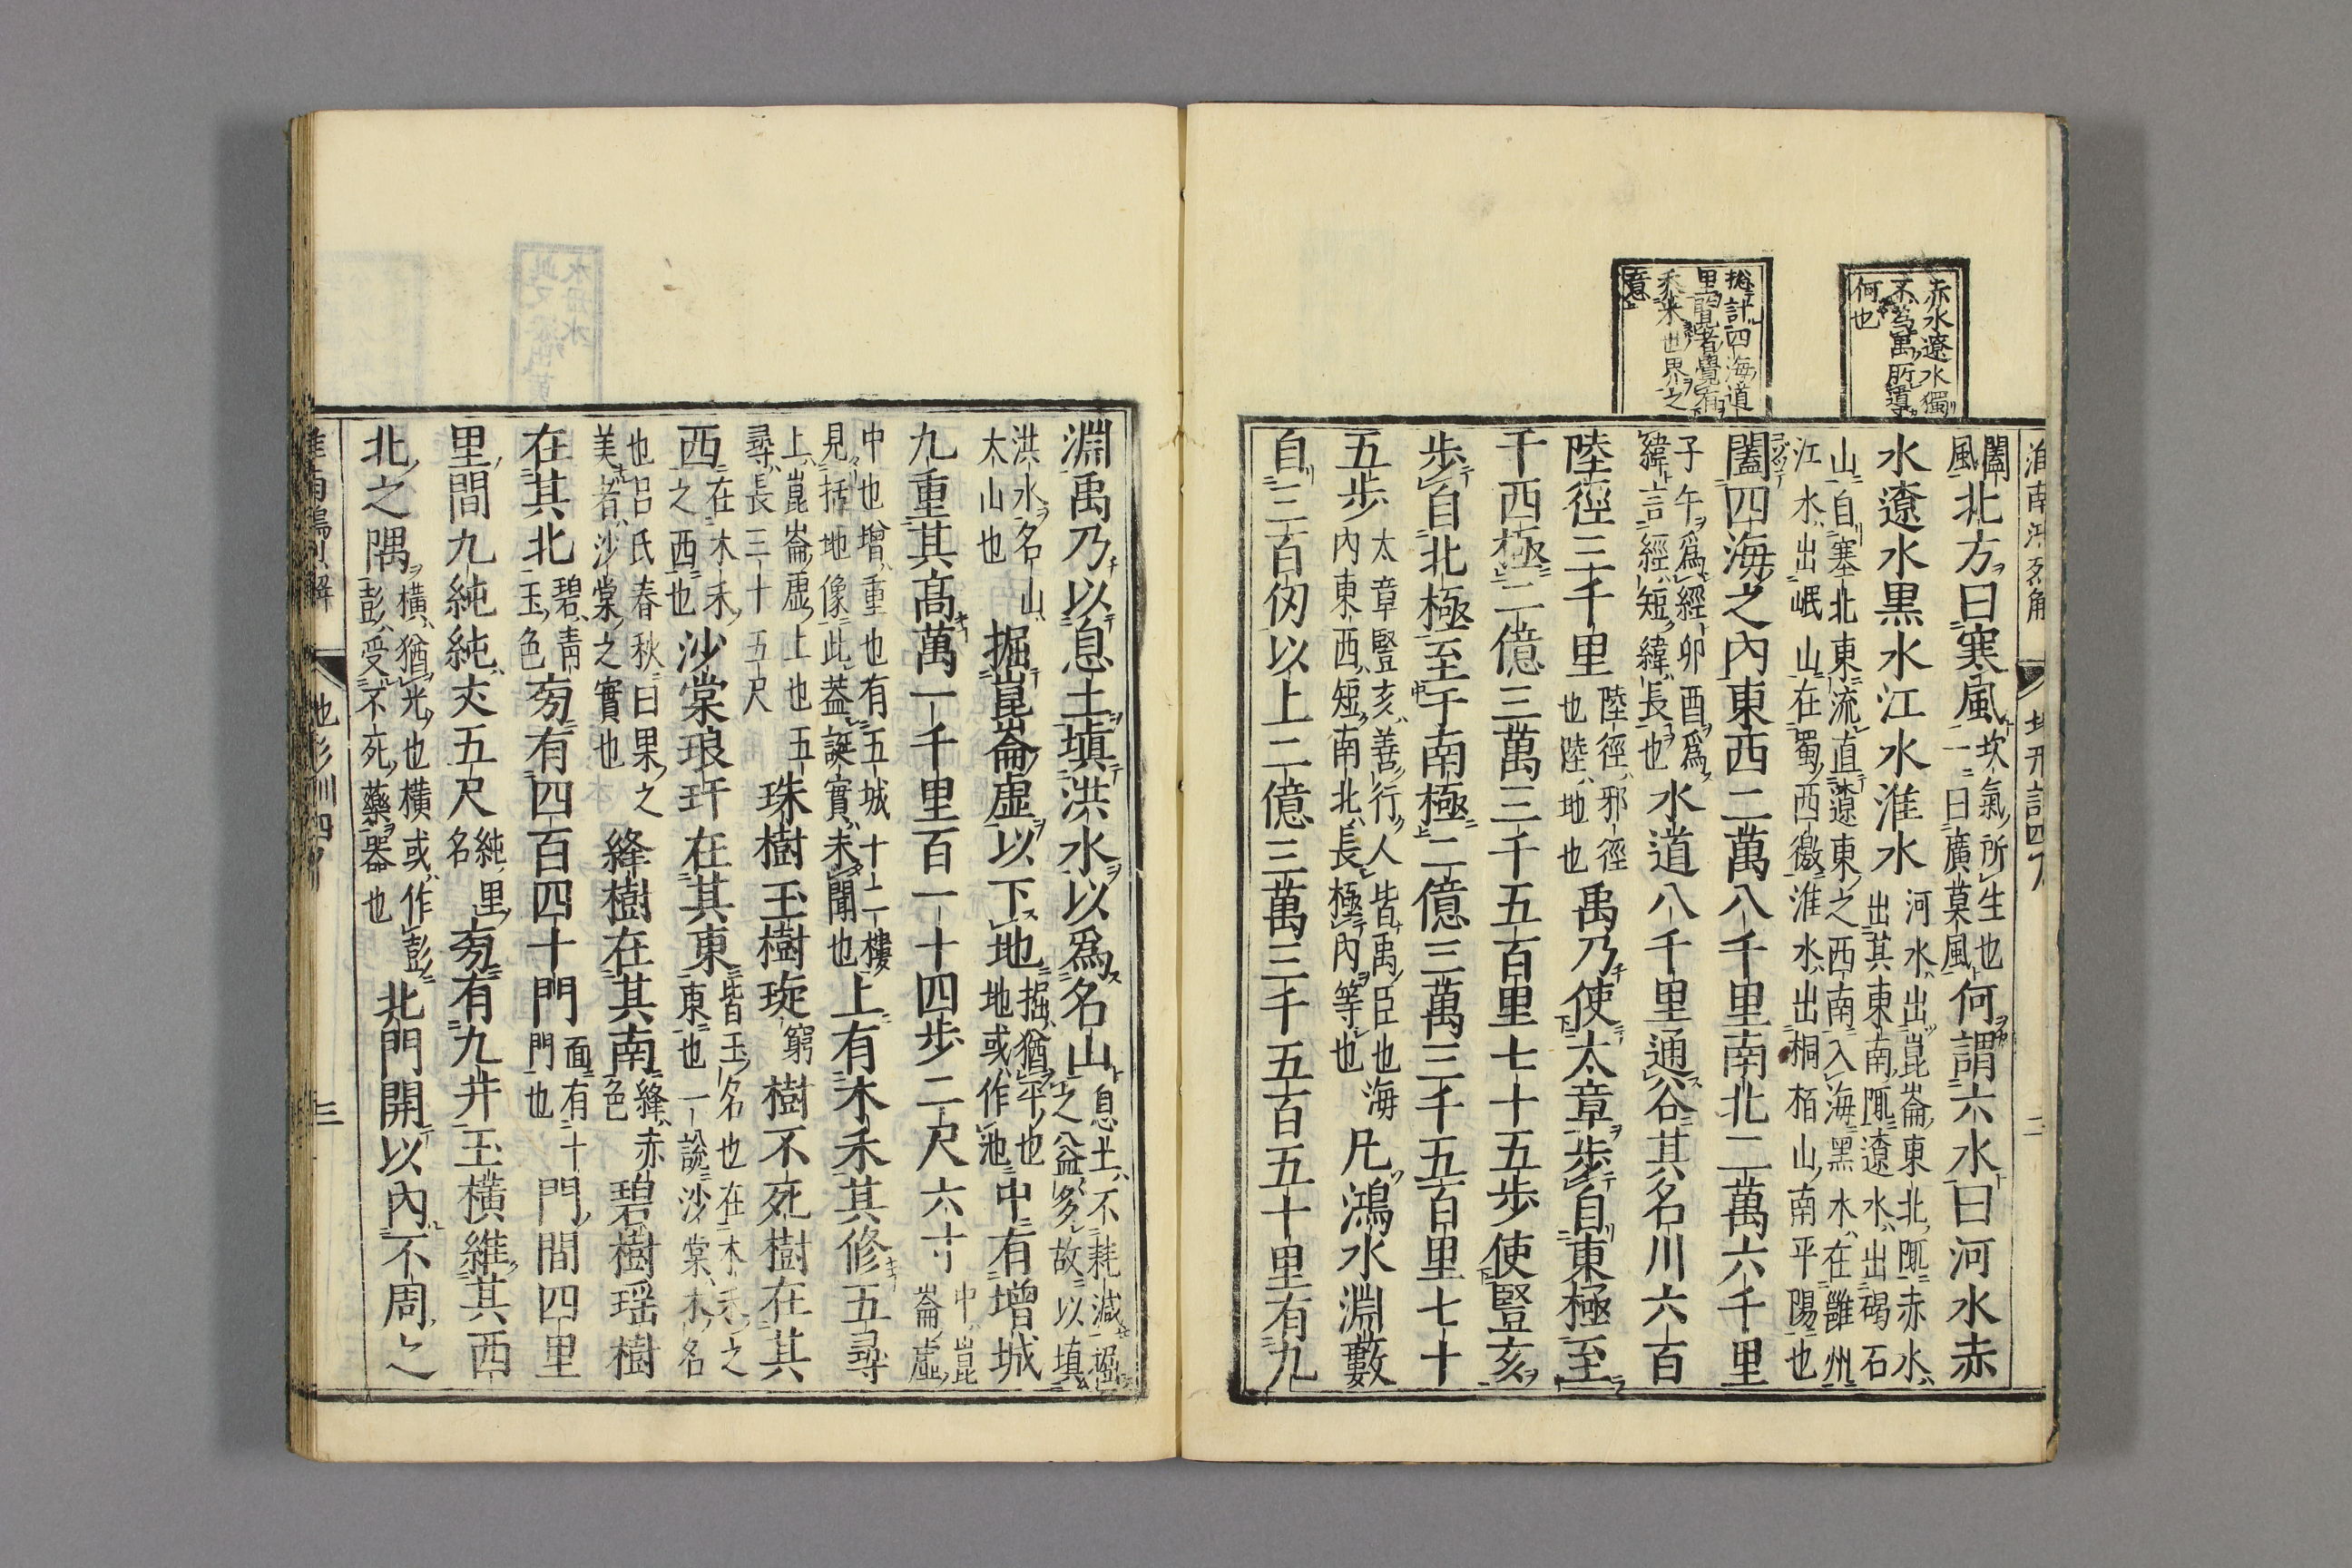 赤水遼水獨
不爲萬所導
何也
計四海道
里者覺有
来世界之
意
闔風北方曰寒風坎氣所生也一曰廣莫風何謂六水曰河水赤
水遼水黒水江水淮水河水出崑崙東北陬赤水出其東南陬遼水出碣石
山自塞北東流直遼東之西南入海黑水在雝州江水出岷山在蜀西徼淮水出桐栢山南平陽也
闔四海之內東西二萬八千里南北二萬六千里
子午爲經卯酉爲緯言經短緯長也水道八千里通谷其名川六百
陸徑三千里陸徑邪徑也陸地也禹乃使太章步自東極至
于西極二億三萬三千五百里七十五步使豎亥
步自北極至于南極二億三萬三千五百里七十
五步太章豎亥善行人皆禹臣也海內東西短南北長極內等也凡鴻水淵藪
自三百仞以上二億三萬三千五百五十里有九
淵禹乃以息土塡洪水以爲名山息土不耗減掘之益多故以填
洪水名山大山也掘崑崙虛以下地掘猶平也地或作池中有增城
九重其高萬一千里百一十四步二尺六寸中崑崙虛
中也增重也有五城十二樓見括地像此葢誕實未聞也上有木禾其修五尋
上崑崙虛上也五尋長三十五尺珠樹玉樹琁樹不死樹在其
西在木禾之西也沙棠琅玕在其東皆玉名也在木禾之東也一説沙棠木名
也呂氏春秋曰果之美者沙棠之實也絳樹在其南絳赤色碧樹瑶樹
在其北碧靑玉色旁有四百四十門面有十門門也門間四里
里間九純純丈五尺純里名旁有九井玉橫維其西
北之隅橫猶光也橫或作彭彭受不死藥器也北門開以內不周之
三